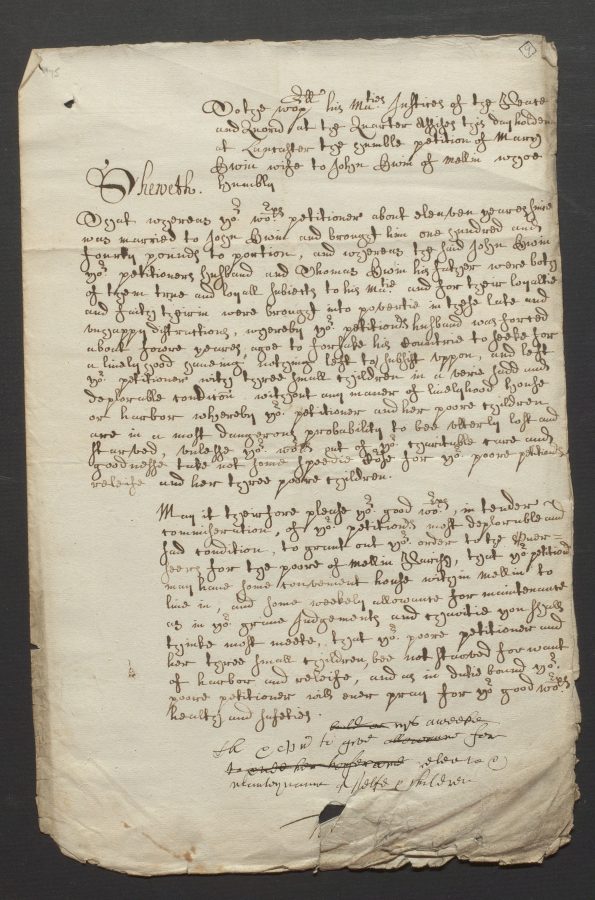 9
To the wor.ll his Ma:ties Justices of the Peace
and Quorū at the Quarter Assizes this day holden
at Lancaster the humble petition of Mary
Swin wife to John Swin of mellin whoe
humbly
Sheweth.
That whereas yo.r wo:rps petitioner about eleaven yeares since
was married to John Swin and brought him one hundred and
fourty pounds to portion, and whereas the said John Swin
yo.r petitioners husband and Thomas Swin his father were both
of them true and loyall subiects to his Ma:tie and for their loyaltie
and faith theirin were brought into povertie in these late and
unhappy distractions, whereby yo.r petitiono.rs husband was forced
about foure yeares agoe to forsake his Countrie to seeke for
a livelyhood haveing nothing left to subsist uppon, and left
yo.r petitioner with three small Children in a verie sadd and
deplorable conditōn without any maner of livelyhood house
or harbor whereby yo.r petitioner and her poore Children
are in a most dangerous probability to bee utterly lost and
starved, unlesse yo.r wo:rps out of yo.r Charitable care and
goodnesse take not some speedie for yo.r poore petitiono.rs
releife and her three poore Children.
May it therefore please yo.r good wo:rps, in tender
commiseration, of yo.r petitiono.rs most deplorable and
sad condition, to grant out yo.r order to the Over=
seers for the poore of mellin Parish, that yo.r petitiono.r
may have some convenient house within mellin to
live in, and some weekely allowance for maintenance
as in yo.r grave Judgements and Charitie you shall
thinke most meete, that yo.r poore petitioner and
her three small Children bee not starved for want
of harbor and releife, and as in dutie bound yo.r
poore petitioner will ever pray for yo.r good wo:rps
health and safeties.
weekely
to give allowance for
to
selfe & children